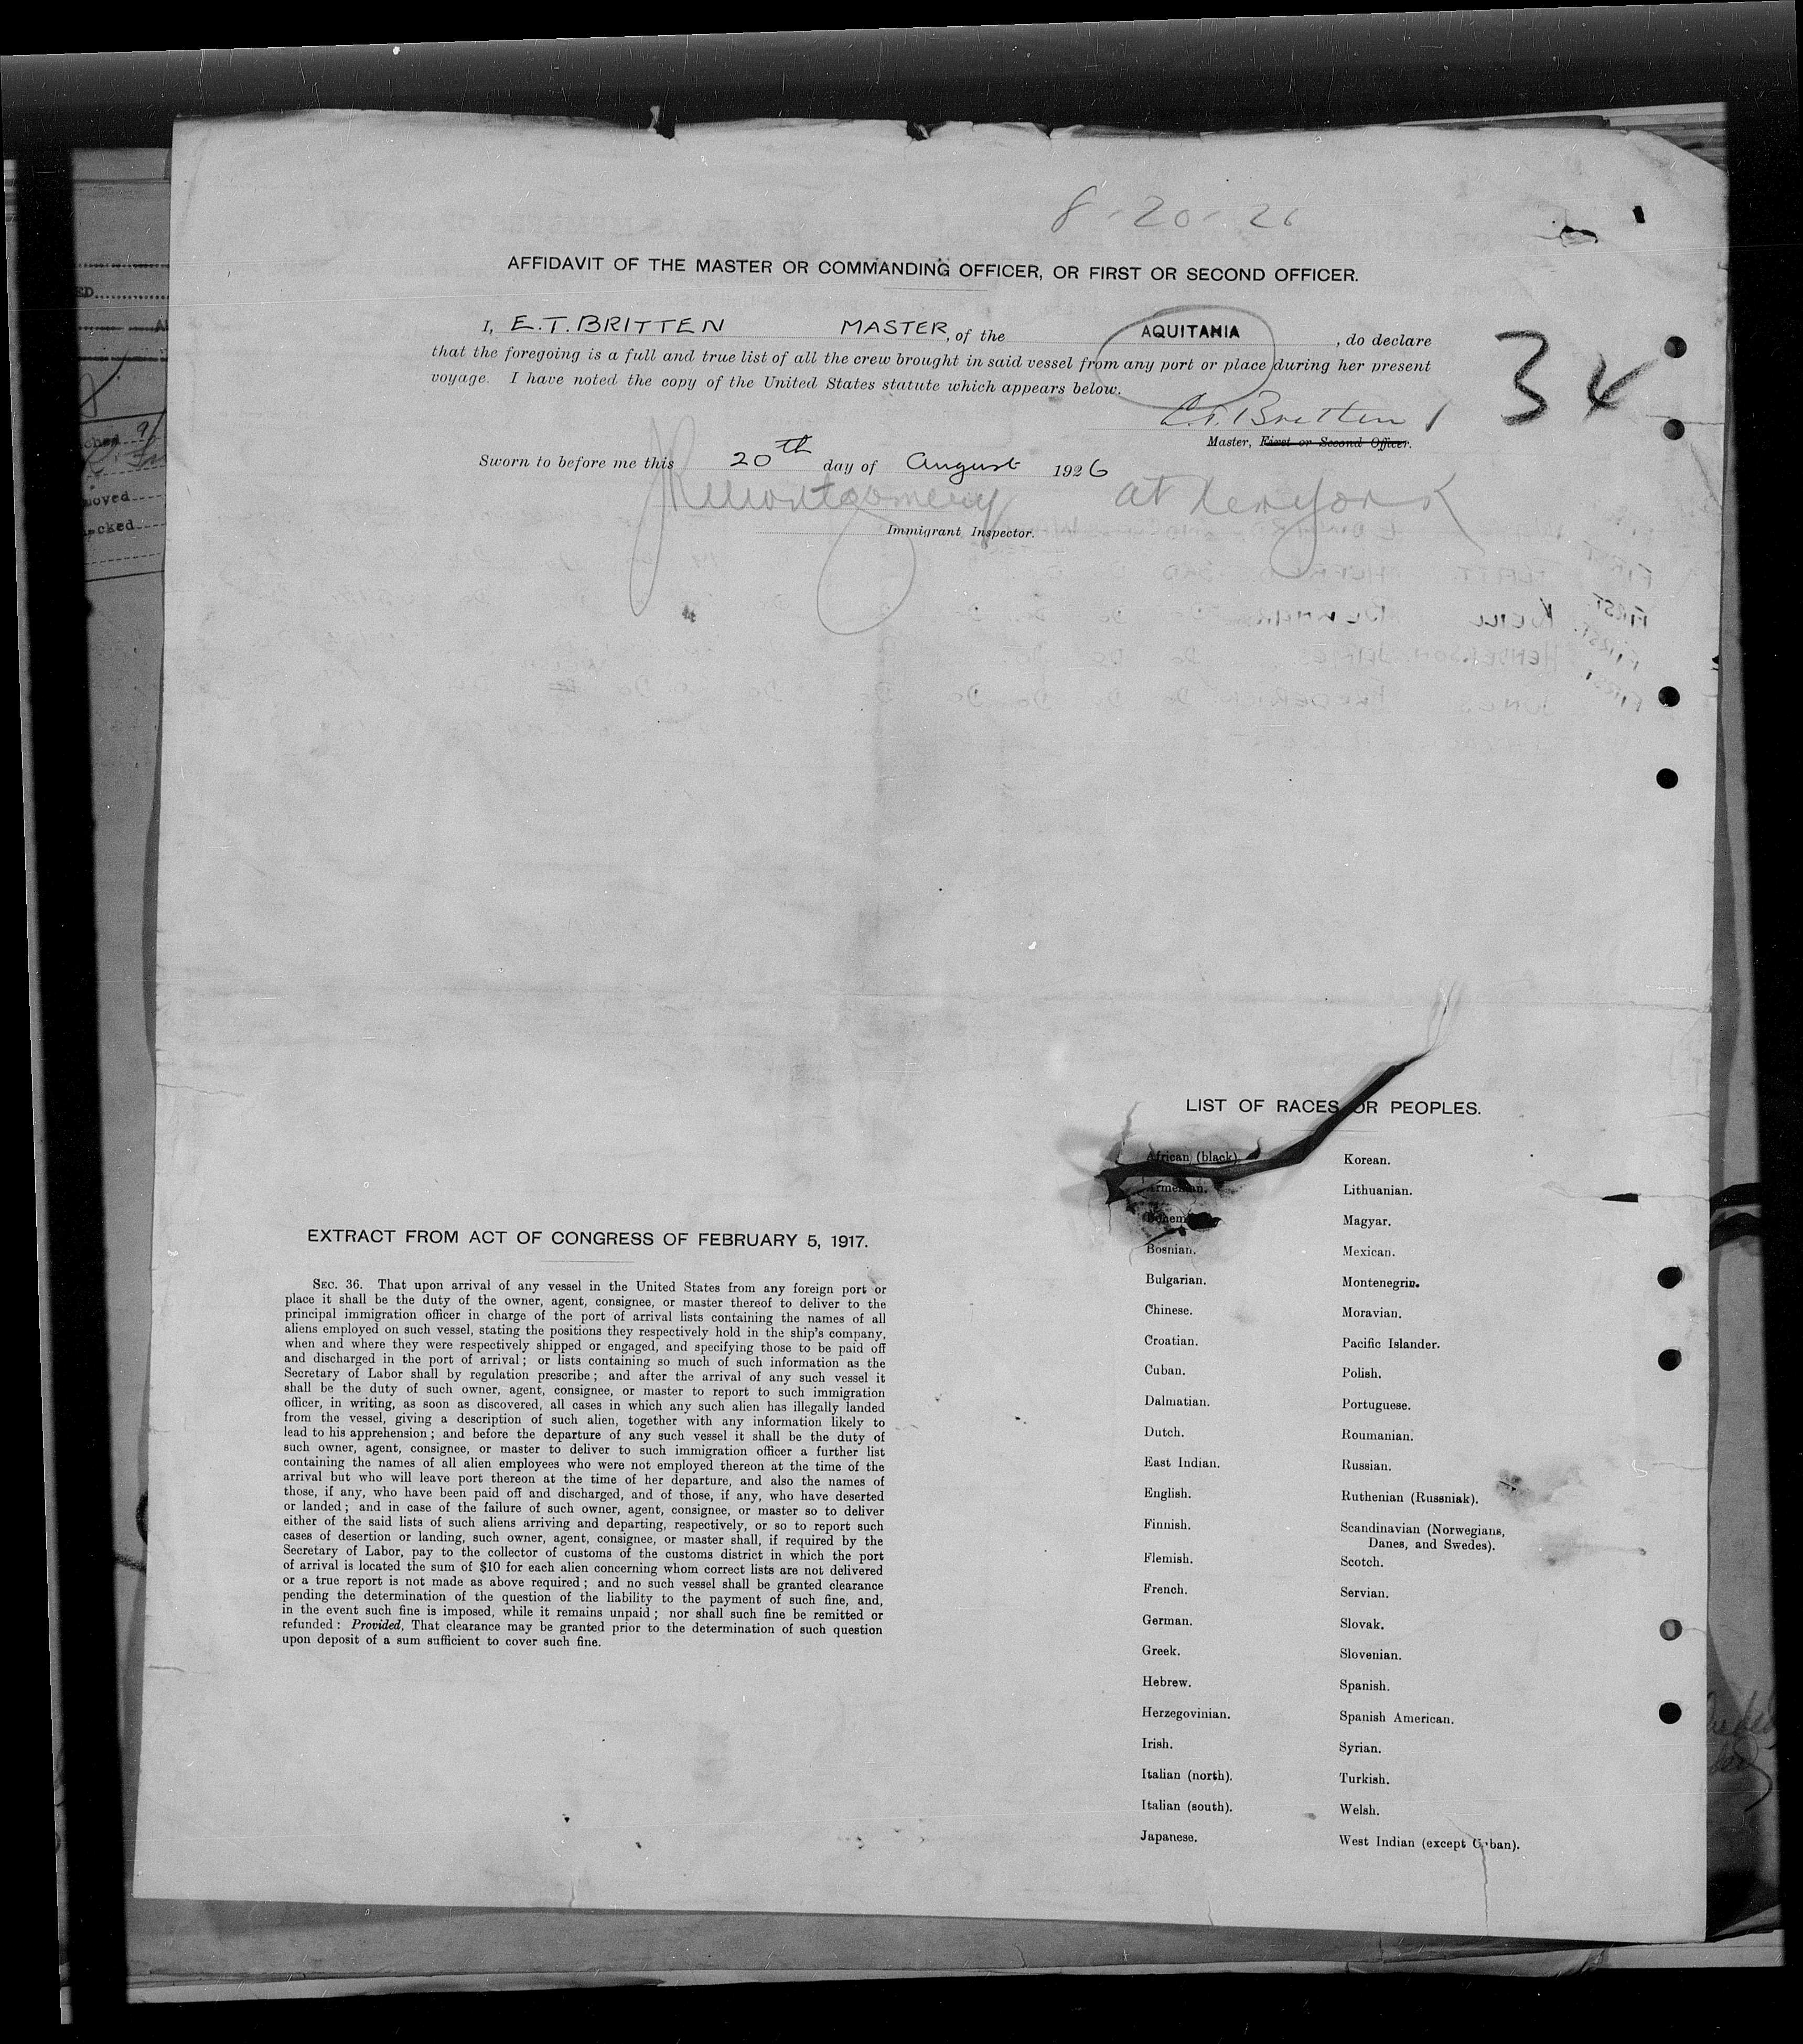 8-20-26
AFFIDAVIT OF THE MASTER OR COMMANDING OFFICER, OR FIRST OR SECOND OFFICER.
I, E.T. BRITTEN MASTER, of the AQUITANIA, do declare
that the foregoing is a full and true list of all the crew brought in said vessel from any port or place during her present
voyage. I have noted the copy of the United States statute which appears below.
34
E.T. Britten
Master, First or Second Officer.
Sworn to before me this 20th day of August 1926
Montgomery at New York
Immigrant Inspector.
LIST OF RACES OR PEOPLES.
African (black)
Armenian.
Bohem
Bosnian.
Bulgarian.
Chinese.
Croatian.
Cuban.
Dalmatian.
Dutch.
East Indian.
English.
Finnish.
Flemish.
French.
German.
Greek.
Hebrew.
Herzegovinian.
Irish.
Italian (north).
Italian (south).
Japanese.
Korean.
Lithuanian.
Magyar.
Mexican.
Montenegrin.
Moravian.
Pacific Islander.
Polish.
Portuguese.
Roumanian.
Russian.
Ruthenian (Russniak).
Scandinavian (Norwegians,
Danes, and Swedes).
Scotch.
Servian.
Slovak.
Slovenian.
Spanish.
Spanish American.
Syrian.
Turkish.
Welsh.
West Indian (except Cuban).
EXTRACT FROM ACT OF CONGRESS OF FEBRUARY 5, 1917.
SEC. 36. That upon arrival of any vessel in the United States from any foreign port or
place it shall be the duty of the owner, agent, consignee, or master thereof to deliver to the
principal immigration officer in charge of the port of arrival lists containing the names of all
aliens employed on such vessel, stating the positions they respectively hold in the ship's company,
when and where they were respectively shipped or engaged, and specifying those to be paid off
and discharged in the port of arrival; or lists containing so much of such information as the
Secretary of Labor shall by regulation prescribe; and after the arrival of any such vessel it
shall be the duty of such owner, agent, consignee, or master to report to such immigration
officer, in writing, as soon as discovered, all cases in which any such alien has illegally landed
from the vessel, giving a description of such alien, together with any information likely to
lead to his apprehension; and before the departure of any such vessel it shall be the duty of
such owner, agent, consignee, or master to deliver to such immigration officer a further list
containing the names of all alien employees who were not employed thereon at the time of the
arrival but who will leave port thereon at the time of her departure, and also the names of
those, if any, who have been paid off and discharged, and of those, if any, who have deserted
or landed; and in case of the failure of such owner, agent, consignee, or master so to deliver
either of the said lists of such aliens arriving and departing, respectively, or so to report such
cases of desertion or landing, such owner, agent, consignee, or master shall, if required by the
Secretary of Labor, pay to the collector of customs of the customs district in which the port
of arrival is located the sum of $10 for each alien concerning whom correct lists are not delivered
or a true report is not made as above required; and no such vessel shall be granted clearance
pending the determination of the question of the liability to the payment of such fine, and,
in the event such fine is imposed, while it remains unpaid; nor shall such fine be remitted or
refunded: Provided, That clearance may be granted prior to the determination of such question
upon deposit of a sum sufficient to cover such fine.